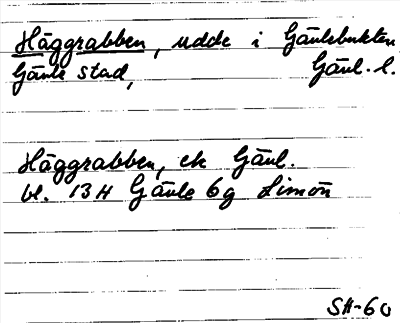 Häggrabben, udde i Gävlebukten
Gävle stad, Gävl. l.
Häggrabben, ek Gävl.
bl. 13H Gävle 6g Limön
SH-60